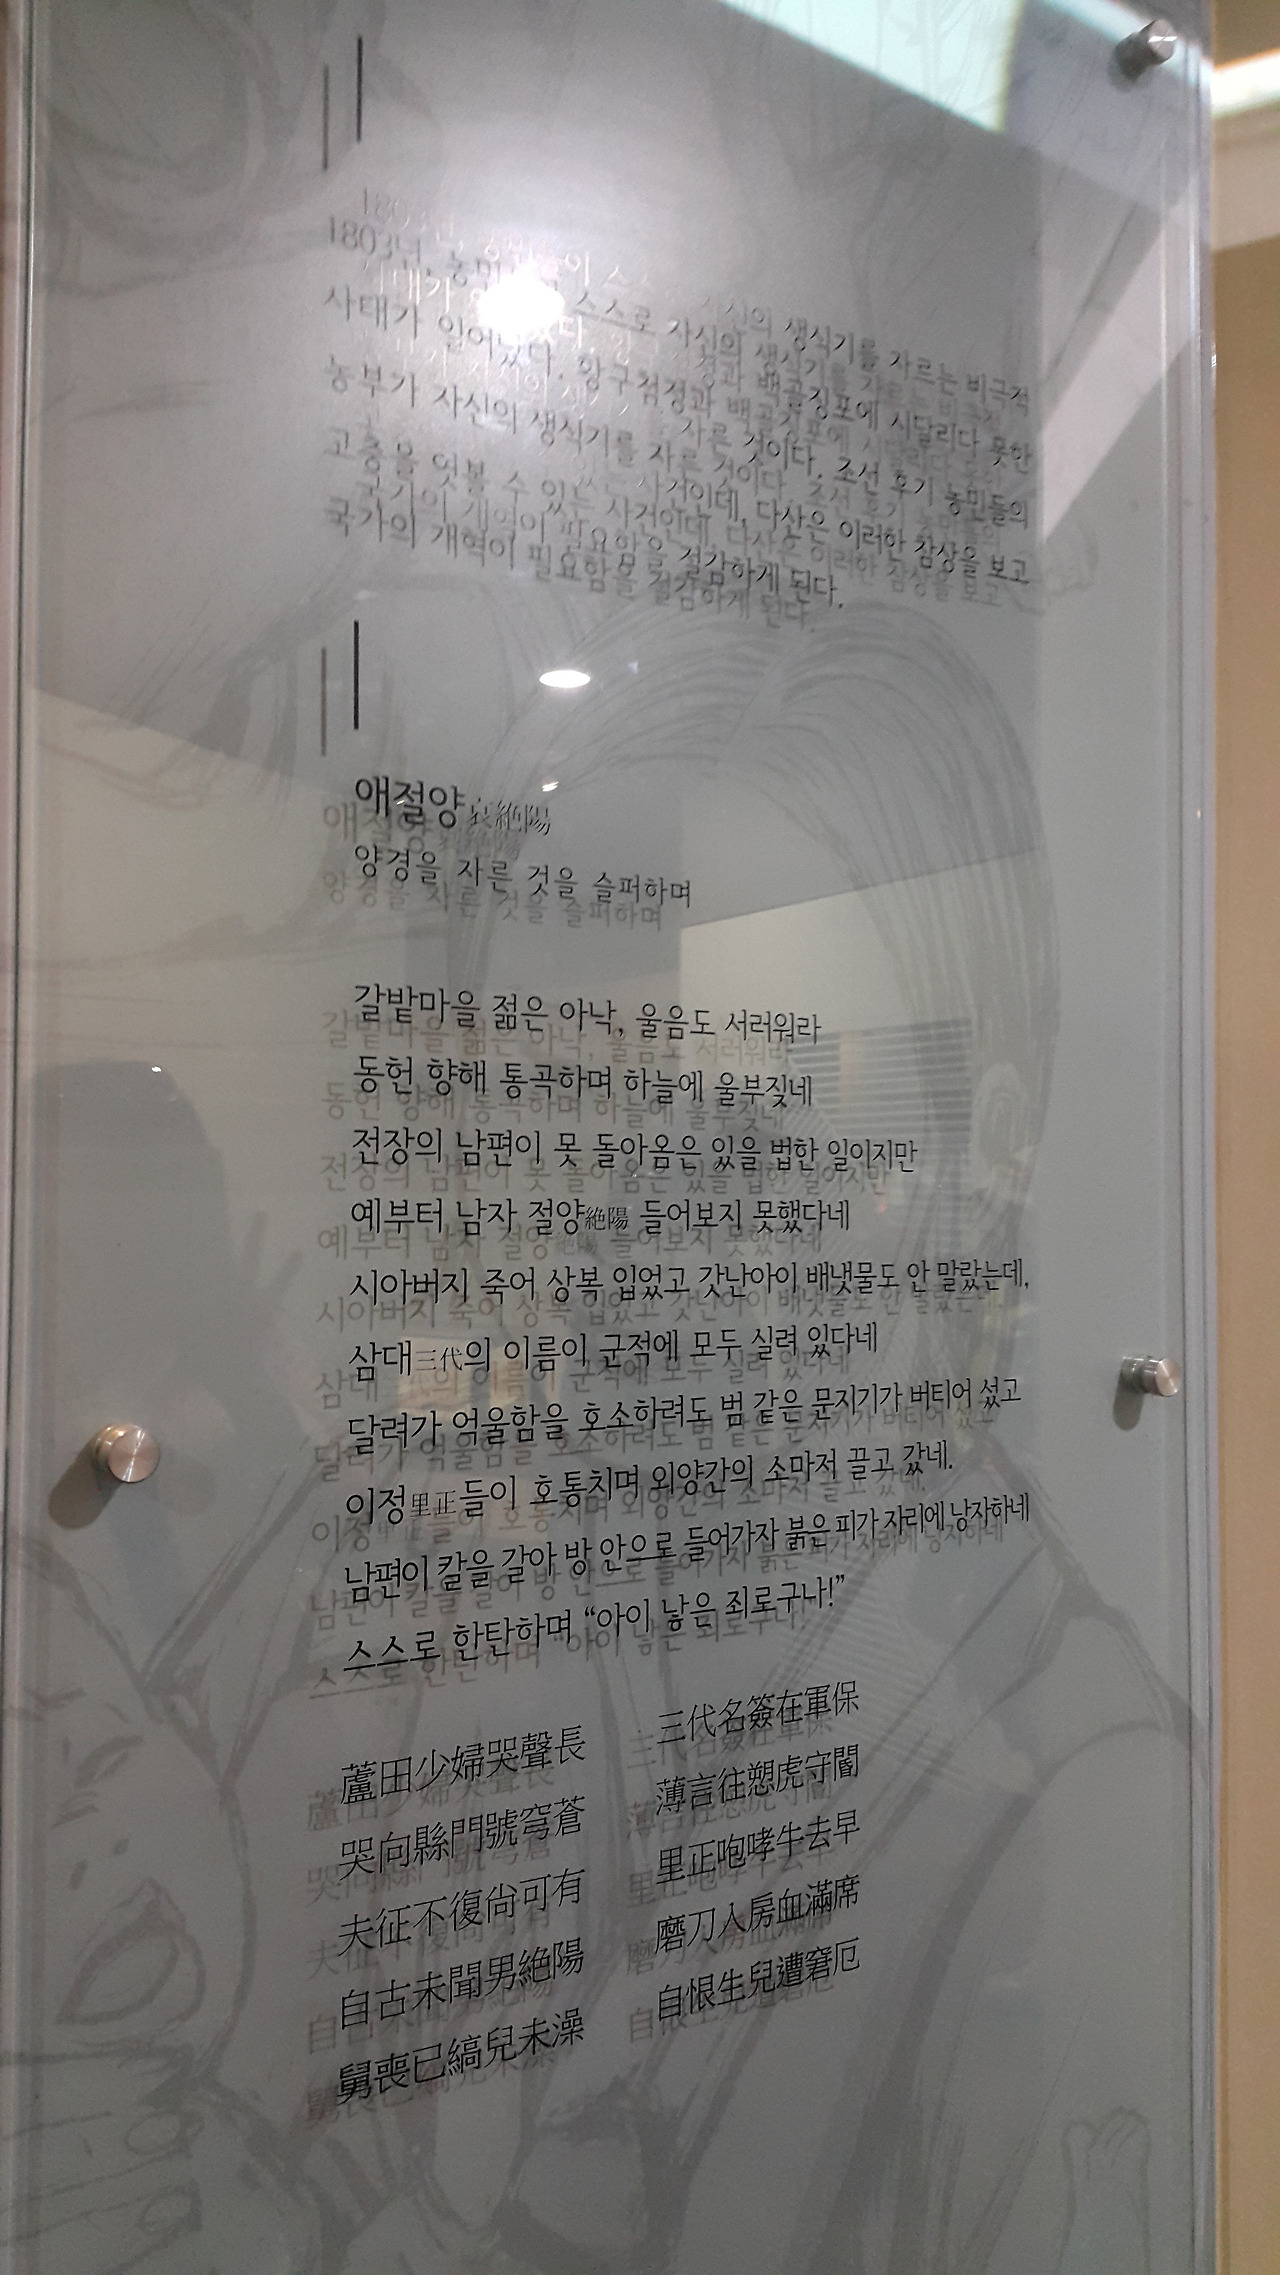 1803년, 농민 스스로 자신의 생식기를 자르는 비극적
사태가 일어났다. 황구첨정과 백골징포에 시달리다 못한
농부가 자신의 생식기를 자른 것이다. 조선 후기 농민들의
고충을 엿볼 수 있는 사건인데, 다산은 이러한 참상을 보고
국가의 개혁이 필요함을 절감하게 된다.
애절양哀絶陽
양경을 자른 것을 슬퍼하며
갈밭마을 젊은 아낙, 울음도 서러워라
동헌 향해 통곡하며 하늘에 울부짖네
전장의 남편이 못 돌아옴은 있을 법한 일이지만
예부터 남자 절양絶陽 들어보지 못했다네
시아버지 죽어 상복 입었고 갓난아이 배냇물도 안 말랐는데,
삼대三代의 이름이 군적에 모두 실려 있다네
달려가 억울함을 호소하려도 범 같은 문지기가 버티어 섰고
이정里正들이 호통치며 외양간의 소마저 끌고 갔네.
남편이 칼을 갈아 방 안으로 들어가자 붉은 피가 자리에 낭자하네
스스로 한탄하며 “아이 낳은 죄로구나!”
蘆田少婦哭聲長
哭向縣門號穹蒼
夫征不復尙可有
自古未聞男絶陽
舅喪已縞兒未澡
三代名簽在軍保
薄言往愬虎守閽
里正咆哮牛去早
磨刀入房血滿席
自恨生兒遭窘厄